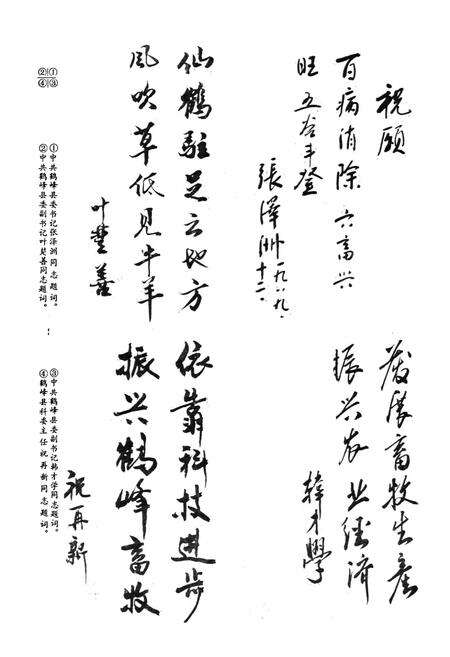 祝願
百病消除 六畜兴
旺 五谷丰登
張澤洲 一九八九、
十二、
仙鶴駐足之地方
風吹草低见牛羊
叶楚善
發展畜牧生産
振兴农业经济
韓才學
依靠科技進步
振兴鶴峰畜牧
祝再新
②①
④③
①中共鹤峰县委书记张泽洲同志题词。
②中共鹤峰县委副书记叶楚善同志题词。
③中共鹤峰县委副书记韩才学同志题词。
④鹤峰县科委主任祝再新同志题词。